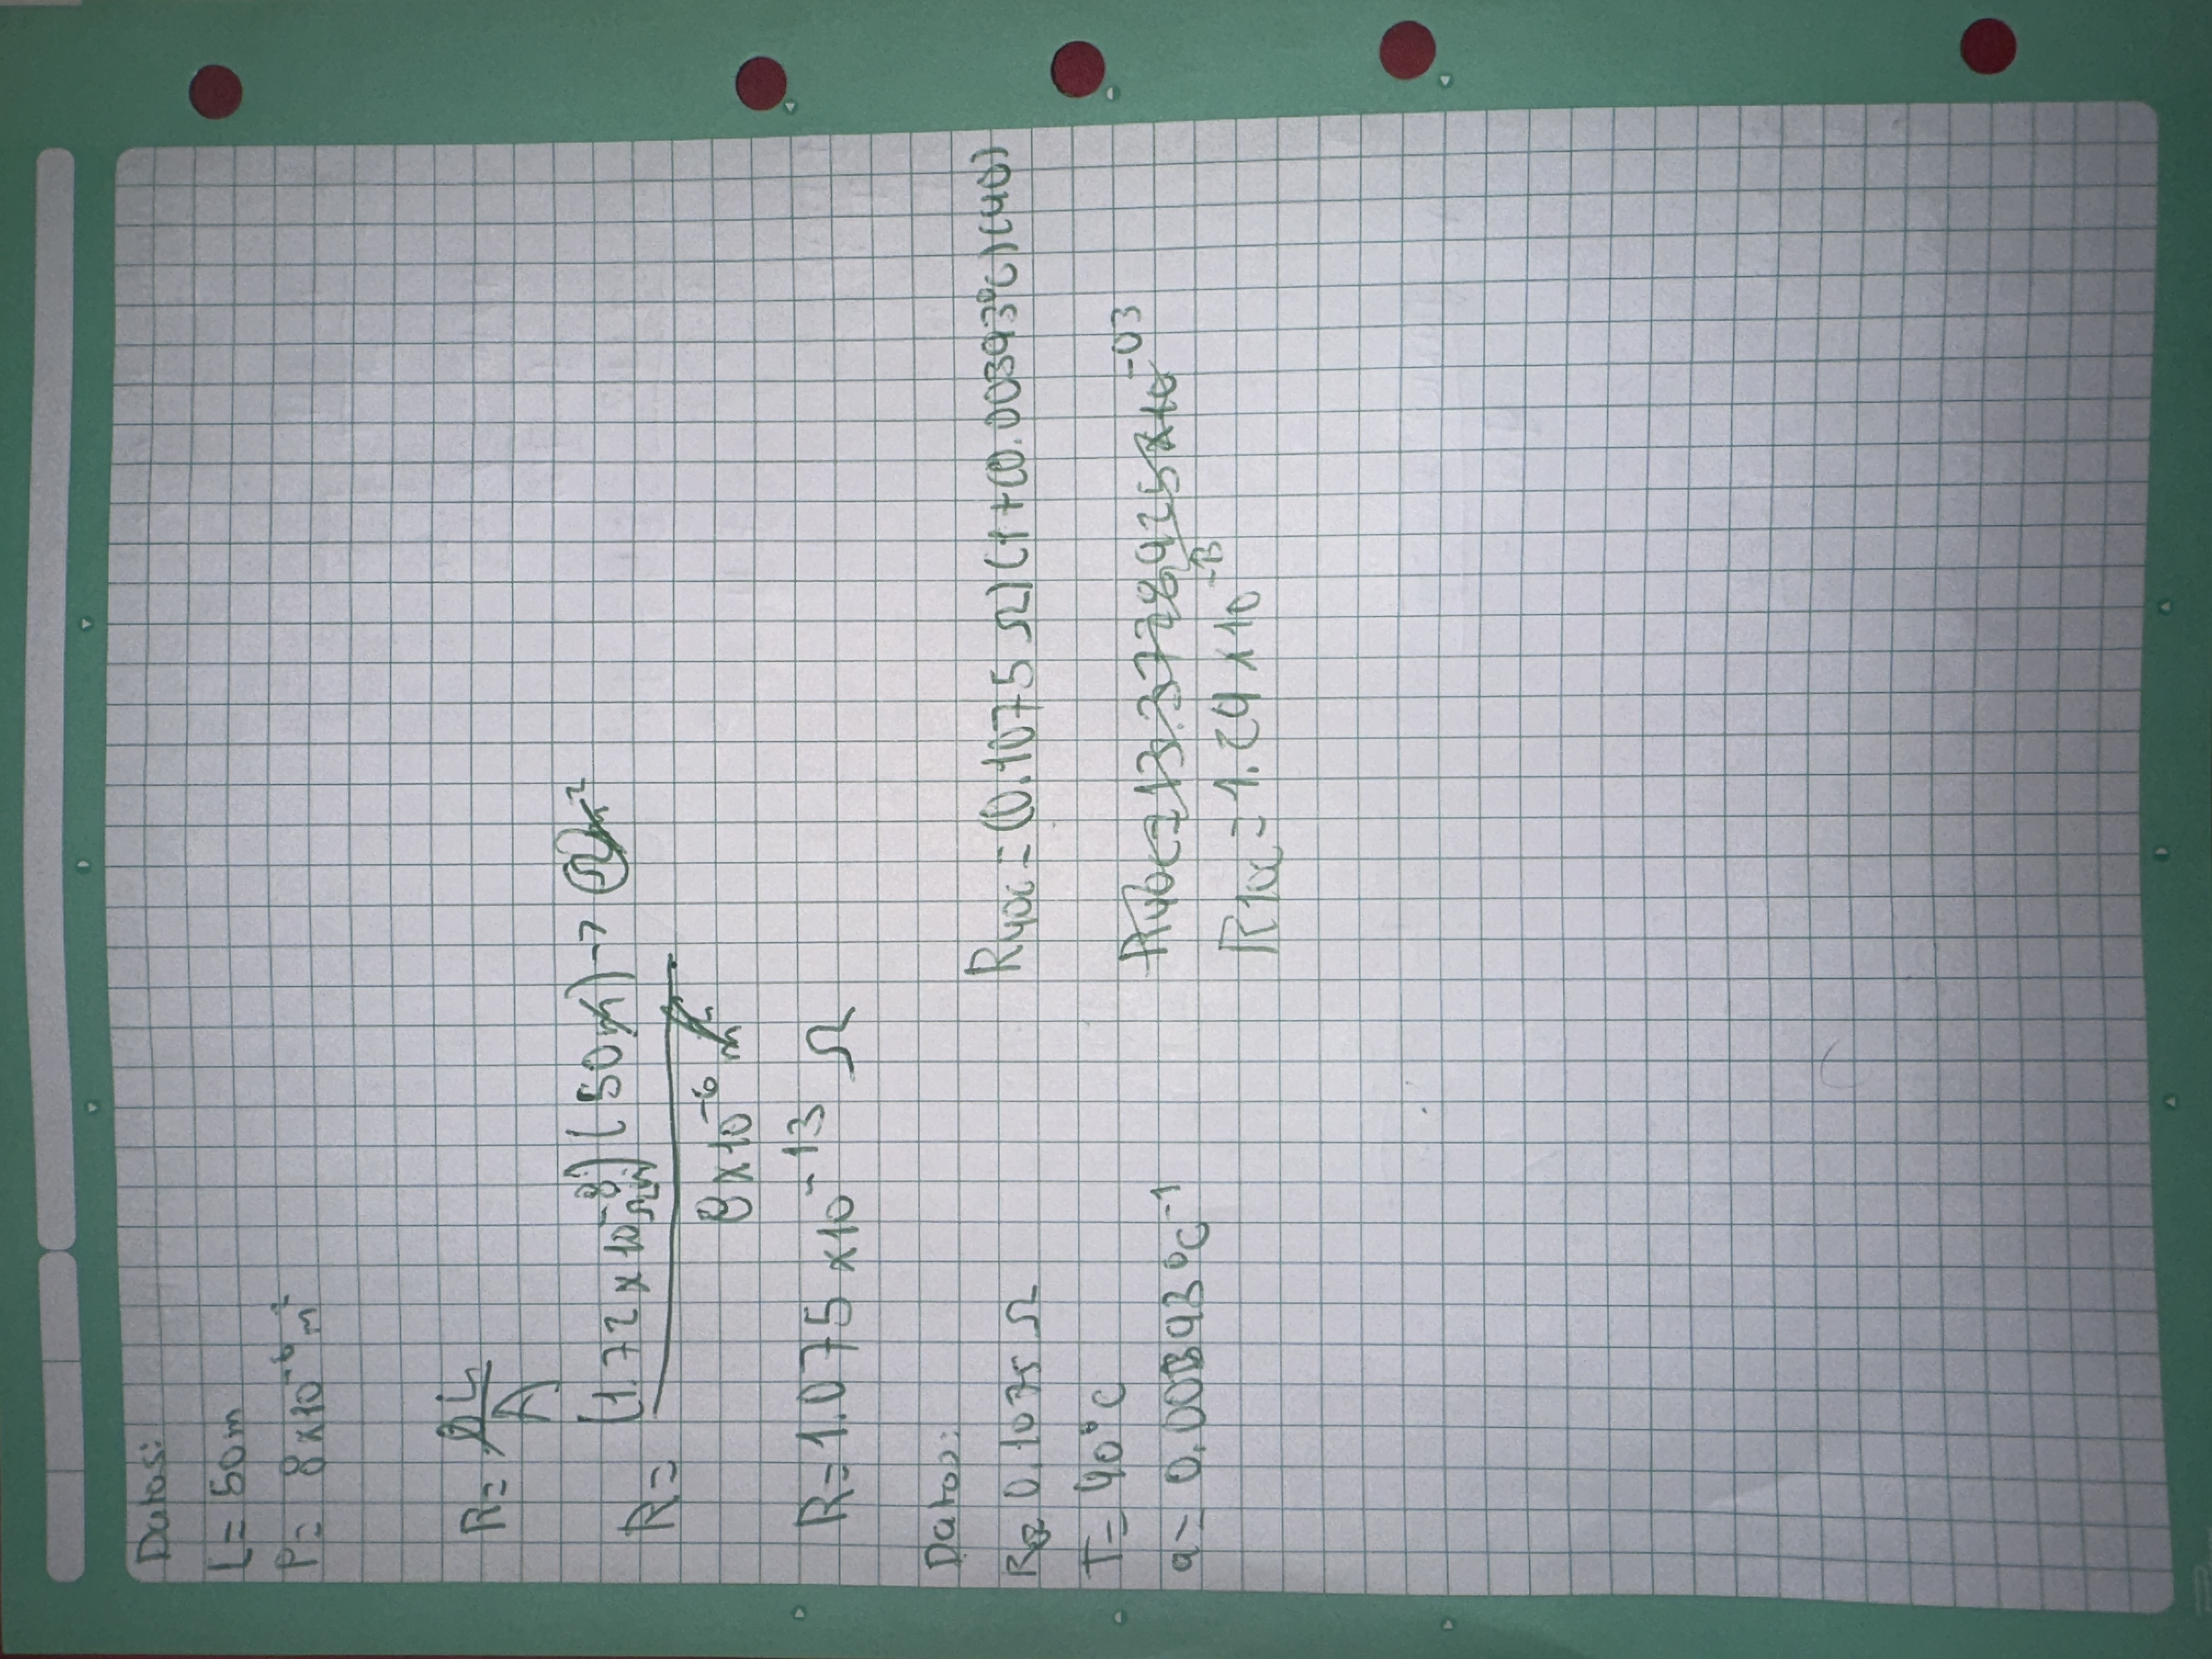 Datos:
L= 50m
P= 8x10⁻⁶ m²
R= ρL/A
R= (1.72 x 10⁻⁸ Ωm)(50m) → Ωm²
8x10⁻⁶ m²
R= 1.075 x10⁻¹³ Ω
Datos:
R= 0.1075 Ω
T= 40°C
a= 0.00393°C⁻¹
R40c= (0.1075 Ω)(1+(0.00393°C)(40)
R40c= 13.37728925x10⁻⁰³
= 1.24 x 10⁻¹³